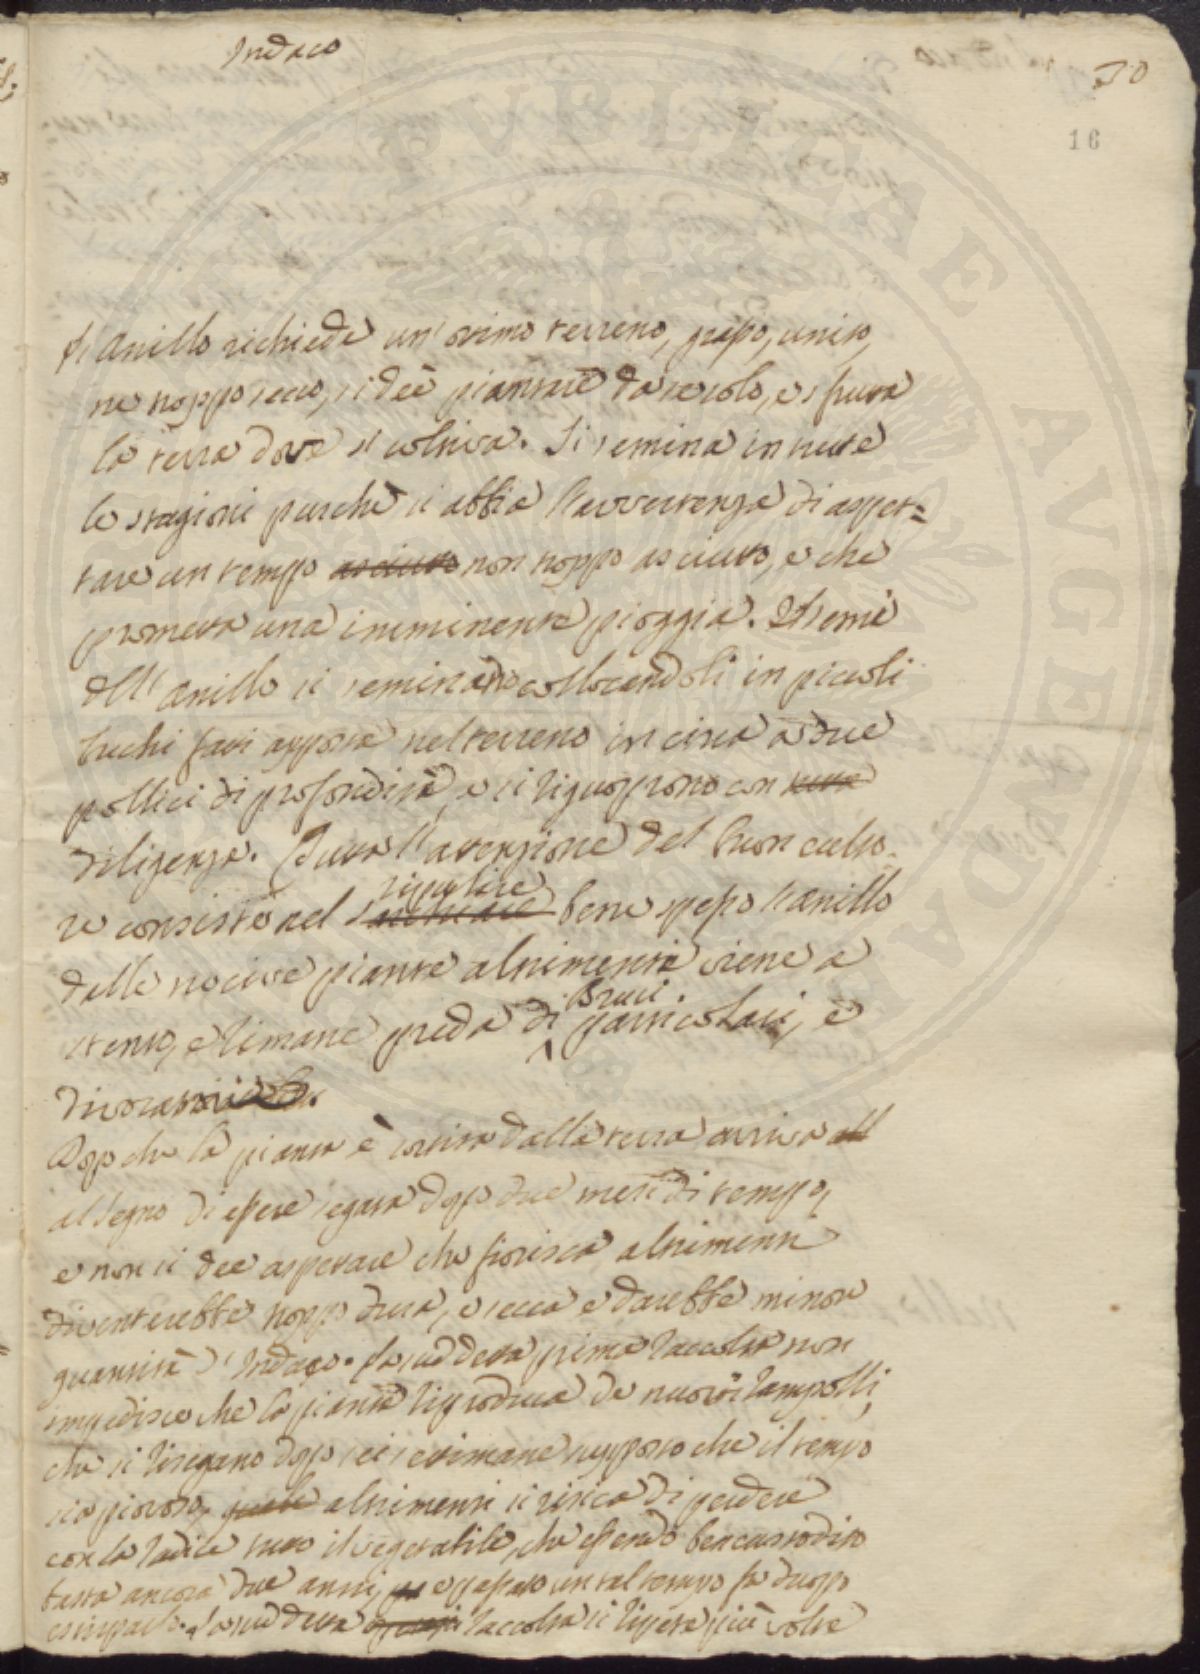 Indaco
70
16
L'Anillo richiede un'ottimo terreno, grasso, unito,
ne troppo secco, si dee piantare da se solo, e sfrutta
la terra dove si coltiva. Si semina in tutte
le stagioni purche si abbia l'avvertenza di aspet=
tare un tempo asciutto non troppo asciutto, e che
prometta una imminente pioggia. I semi
dell'Anillo si seminano collocandoli in piccoli
buchi fatti apposta nel terreno in circa a due
pollici di profondità, e si riquoprono con tutta
diligenza. Tutta l'attenzione del buon culto=
re consiste nel ripulire bene spesso l'anillo
dalle nocive piante altrimenti viene a
stento, e rimane preda di Bruci particolari, e
divoratori
Dopo che la pianta è sortita dalla terra arriva all
al segno di essere segata dopo due mesi di tempo,
e non si dee aspettare che fiorisca altrimenti
diventerebbe troppo dura, e secca e darebbe minor
quantità d'Indaco. La suddetta prima raccolta non
impedisce che la pianta riproduca de nuovi rampolli,
che si risegano dopo sei settimane supposto che il tempo
sia piovoso, altrimenti si risica di perdere
con la radice tutto il vegetabile, che essendo ben custodito
basta ancora due anni, e passato un tal tempo fa duopo
estirparlo. La suddetta raccolta si ripete più volte